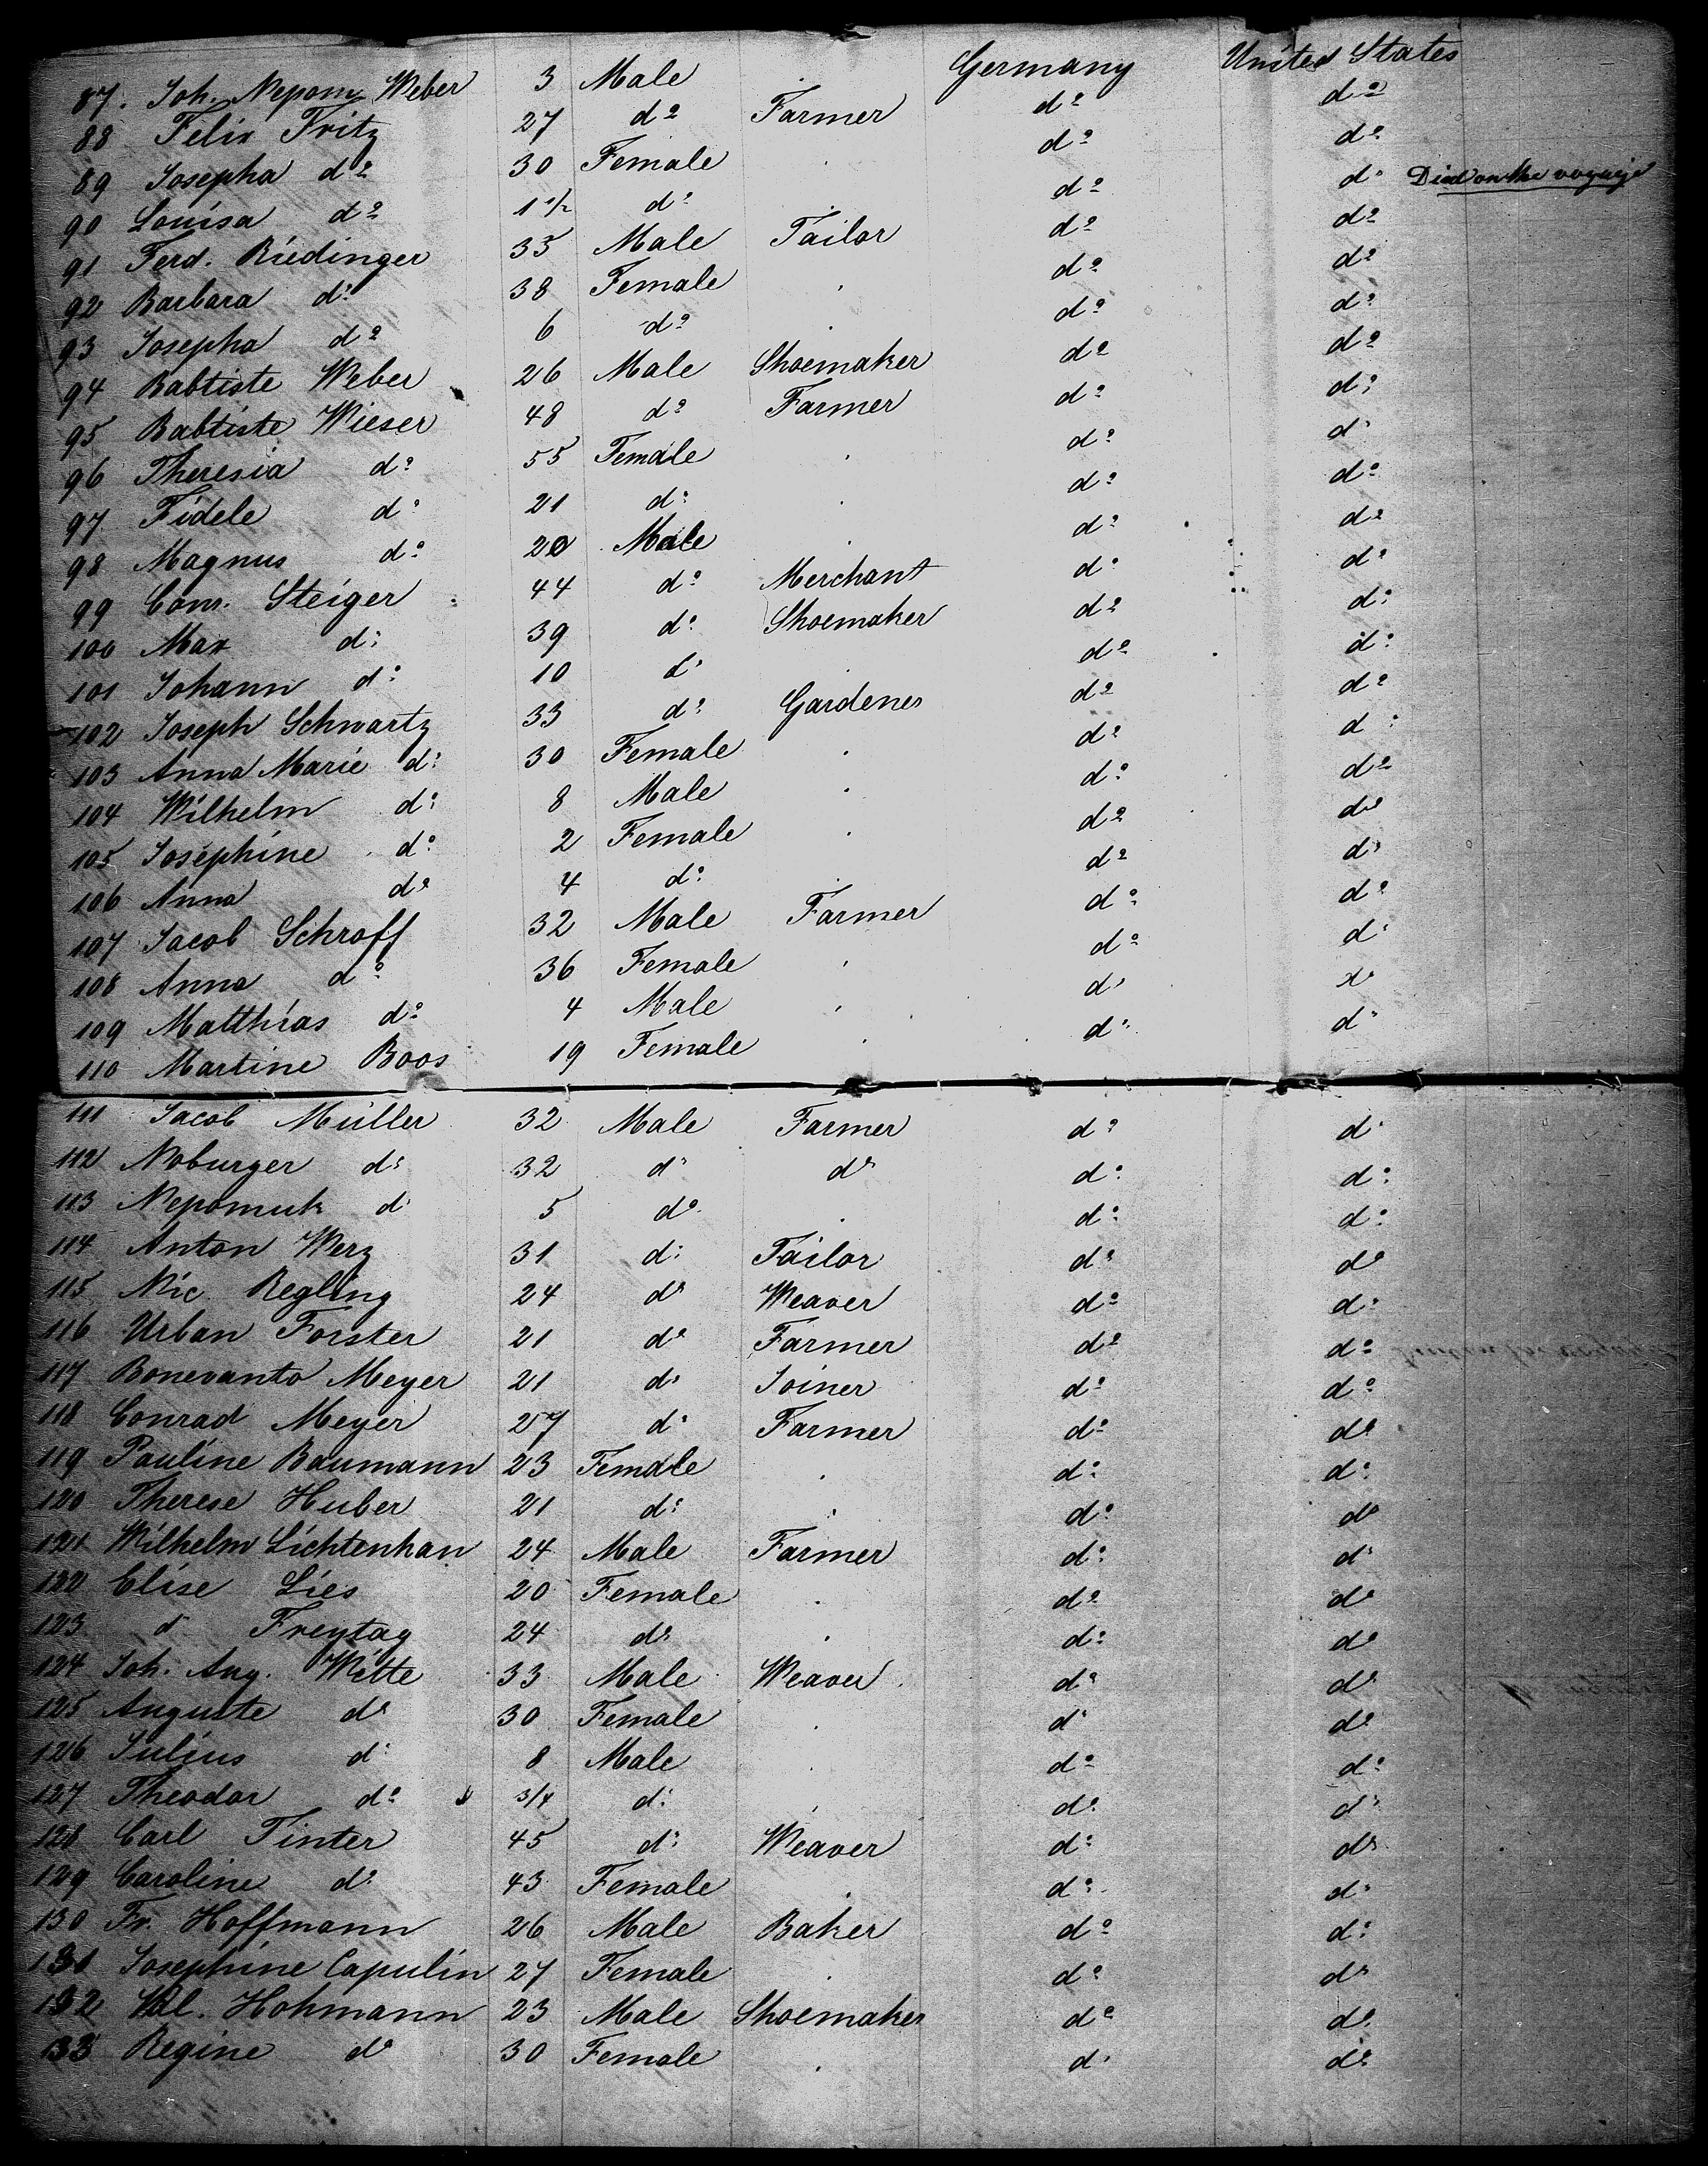 87. Joh. Nepom. Weber 3 Male Germany United States
88 Felix Fritz 27 do Farmer do do
89 Josepha do 30 Female do do
90 Louisa do 1 1/2 do do do Died on the voyage
91 Ferd. Riedinger 35 Male Tailor do do
92 Barbara do 38 Female do do
93 Josepha do 6 do do do
94 Babtiste Weber 26 Male Shoemaker do do
95 Babtiste Wieser 48 do Farmer do do
96 Theresia do 55 Female do do
97 Fidele do 21 do do do
98 Magnus do 20 Male do do
99 Conr. Steiger 44 do Merchant do do
100 Max do 39 do Shoemaker do do
101 Johann do 10 do do do
102 Joseph Schwartz 33 do Gardener do do
103 Anna Marie do 30 Female do do
104 Wilhelm do 8 Male do do
105 Josephine do 2 Female do do
106 Anna do 4 do do do
107 Jacob Schroff 32 Male Farmer do do
108 Anna do 36 Female do do
109 Matthias do 4 Male do do
110 Martine Boos 19 Female do do
111 Jacob Müller 32 Male Farmer do do
112 Noburger do 32 do do do do
113 Nepomuk do 5 do do do
114 Anton Werz 31 do Tailor do do
115 Nic. Regling 24 do Weaver do do
116 Urban Forster 21 do Farmer do do
117 Bonevanto Meyer 21 do Joiner do do
118 Conrad Meyer 27 do Farmer do do
119 Pauline Baumann 23 Female do do
120 Therese Huber 21 do do do
121 Wilhelm Lichtenhan 24 Male Farmer do do
122 Elise Lies 20 Female do do
123 do Freytag 24 do do do
124 Joh. Aug. Witte 33 Male Weaver do do
125 Auguste do 30 Female do do
126 Julius do 8 Male do do
127 Theodor do 3/4 do do do
128 Carl Tinter 45 do Weaver do do
129 Caroline do 43 Female do do
130 Fr. Hoffmann 26 Male Baker do do
131 Josephine Capulin 27 Female do do
132 Val. Hohmann 23 Male Shoemaker do do
133 Regine do 30 Female do do